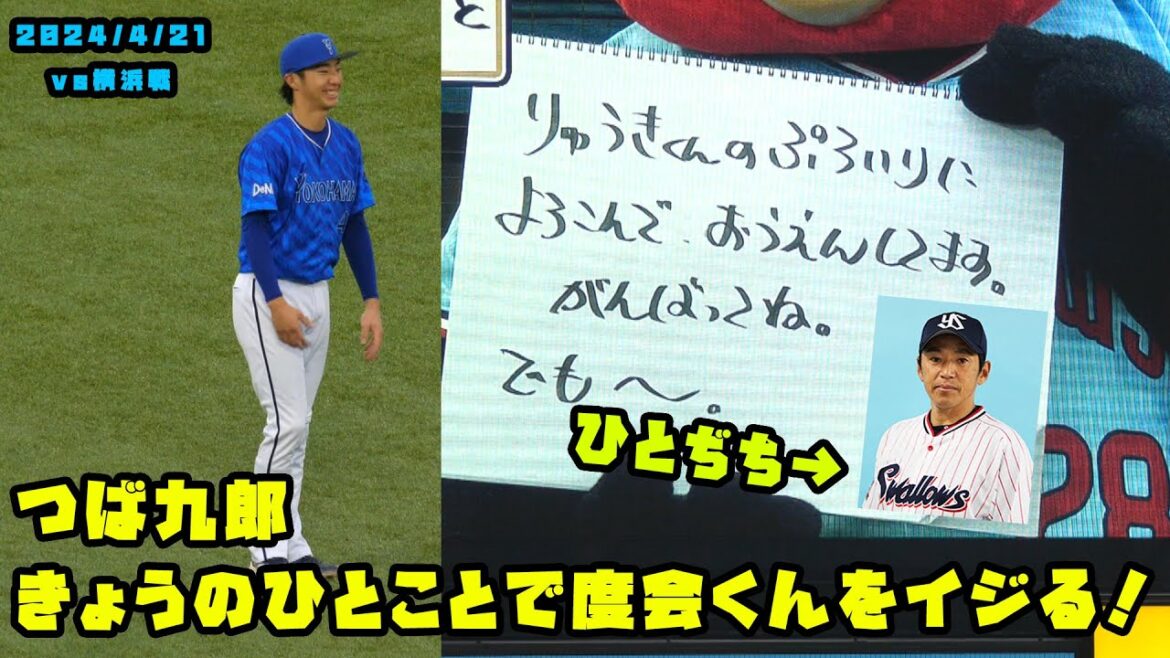 2024/4/21
vs横浜戦
と
りゅうきくんのぷろいりに
よろこんで、おうえんしてます。
がんばってね。
でも〜。
ひとぢち→
DeNA
YOKOHAMA
YS
Swallows
28
つば九郎
きょうのひとことで度会くんをイジる！